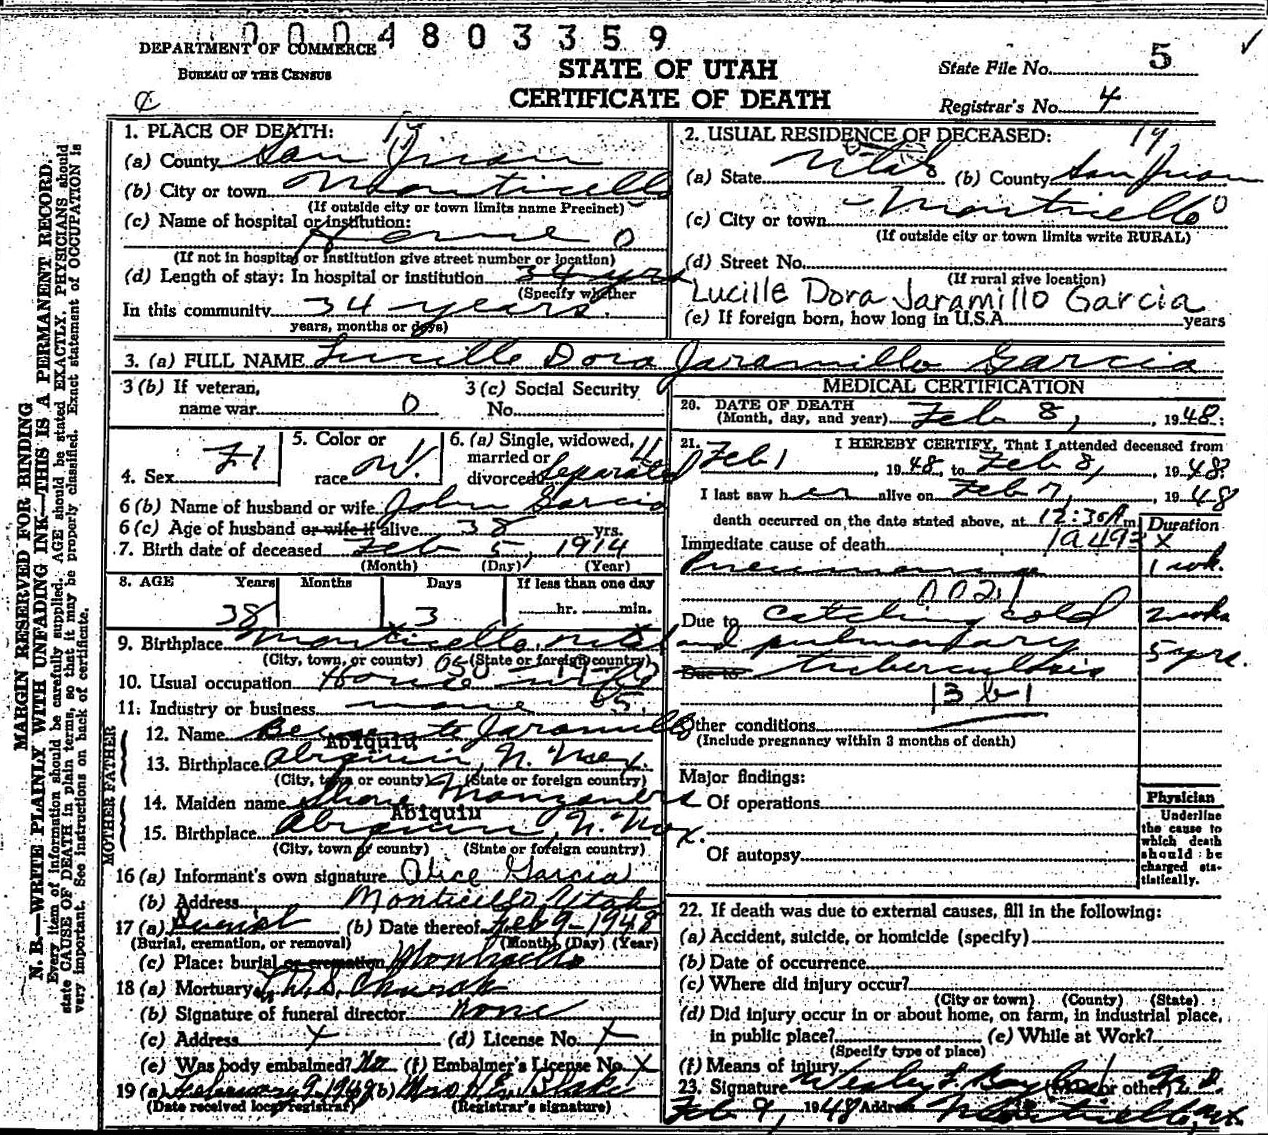 0004803359
DEPARTMENT OF COMMERCE
BUREAU OF THE CENSUS
STATE OF UTAH
CERTIFICATE OF DEATH
State File No. 5
Registrar's No. 4
MARGIN RESERVED FOR BINDING
N. B.—WRITE PLAINLY WITH UNFADING INK—THIS IS A PERMANENT RECORD.
Every item of information should be carefully supplied. AGE should be stated EXACTLY. PHYSICIANS should
state CAUSE OF DEATH in plain terms, so that it may be properly classified. Exact statement of OCCUPATION is
very important. See instructions on back of certificate.
1. PLACE OF DEATH: 19
(a) County San Juan
(b) City or town Monticello
(If outside city or town limits name Precinct)
(c) Name of hospital or institution:
Home 0
(If not in hospital or institution give street number or location)
(d) Length of stay: In hospital or institution 34 yrs
(Specify whether
In this community 34 years.
years, months or days)
2. USUAL RESIDENCE OF DECEASED: 19
(a) State Utah (b) County San Juan
(c) City or town Monticello 0
(If outside city or town limits write RURAL)
(d) Street No.
(If rural give location)
Lucille Dora Jaramillo Garcia
(e) If foreign born, how long in U.S.A. years
3. (a) FULL NAME Lucille Dora Jaramillo Garcia
3 (b) If veteran,
name war 0
3 (c) Social Security
No.
4. Sex
5. Color or
race W.
6. (a) Single, widowed, 4
married or
divorced Separated
6 (b) Name of husband or wife John Garcia
6 (c) Age of husband or wife if alive 38 yrs.
7. Birth date of deceased Feb 5, 1914
(Month) (Day) (Year)
8. AGE Years Months Days If less than one day
38 3 hr. min.
9. Birthplace Monticello, Utah
(City, town, or county) (State or foreign country)
10. Usual occupation House wife
11. Industry or business none
FATHER
12. Name Jaramillo
Abiquiu
13. Birthplace Abiquiu, N. Mex.
(City, town or county) (State or foreign country)
MOTHER
14. Maiden name Manzanares
Abiquiu
15. Birthplace Abiquiu, N. Mex.
(City, town or county) (State or foreign country)
16 (a) Informant's own signature Alice Garcia
(b) Address Monticello, Utah
17 (a) Burial (b) Date thereof Feb 9-1948
(Burial, cremation, or removal) (Month) (Day) (Year)
(c) Place: burial or cremation Monticello
18 (a) Mortuary L. D. S. Church
(b) Signature of funeral director None
(c) Address x (d) License No. x
(e) Was body embalmed? No (f) Embalmer's License No. X
19 (a) February 9, 1948 (b) Mrs. Blake
(Date received local registrar) (Registrar's signature)
MEDICAL CERTIFICATION
20. DATE OF DEATH
(Month, day, and year) Feb 8, 1948
21. I HEREBY CERTIFY, That I attended deceased from
Feb 1, 1948, to Feb 8, 1948
I last saw her alive on Feb 7, 1948
death occurred on the date stated above, at 12:30 A m
Duration
Immediate cause of death
Pneumonia 1 wk.
002.1
Due to catching cold 2 wks
and pulmonary 5 yrs.
Due to tuberculosis
13 b-1
Other conditions
(Include pregnancy within 3 months of death)
Major findings:
Of operations
Of autopsy
Physician
Underline
the cause to
which death
should be
charged sta-
tistically.
22. If death was due to external causes, fill in the following:
(a) Accident, suicide, or homicide (specify)
(b) Date of occurrence
(c) Where did injury occur?
(City or town) (County) (State)
(d) Did injury occur in or about home, on farm, in industrial place,
in public place? (e) While at Work?
(Specify type of place)
(f) Means of injury
23. Signature Wesley or other M.D.
Feb 9, 1948 Address Monticello, Ut.